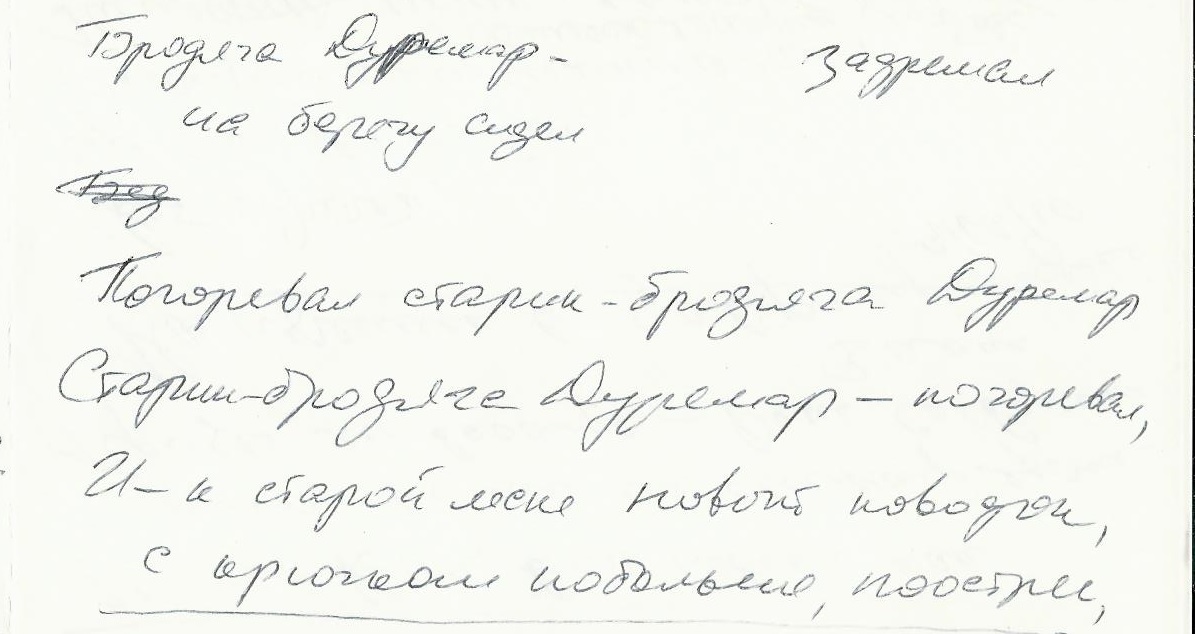 Бродяга Дуремар - задремал
на берегу сидел
Бед
Погоревал старик-бродяга Дуремар
Старик-бродяга Дуремар – погоревал,
И – к старой леске новый поводок,
с крючком побольше, поострее,